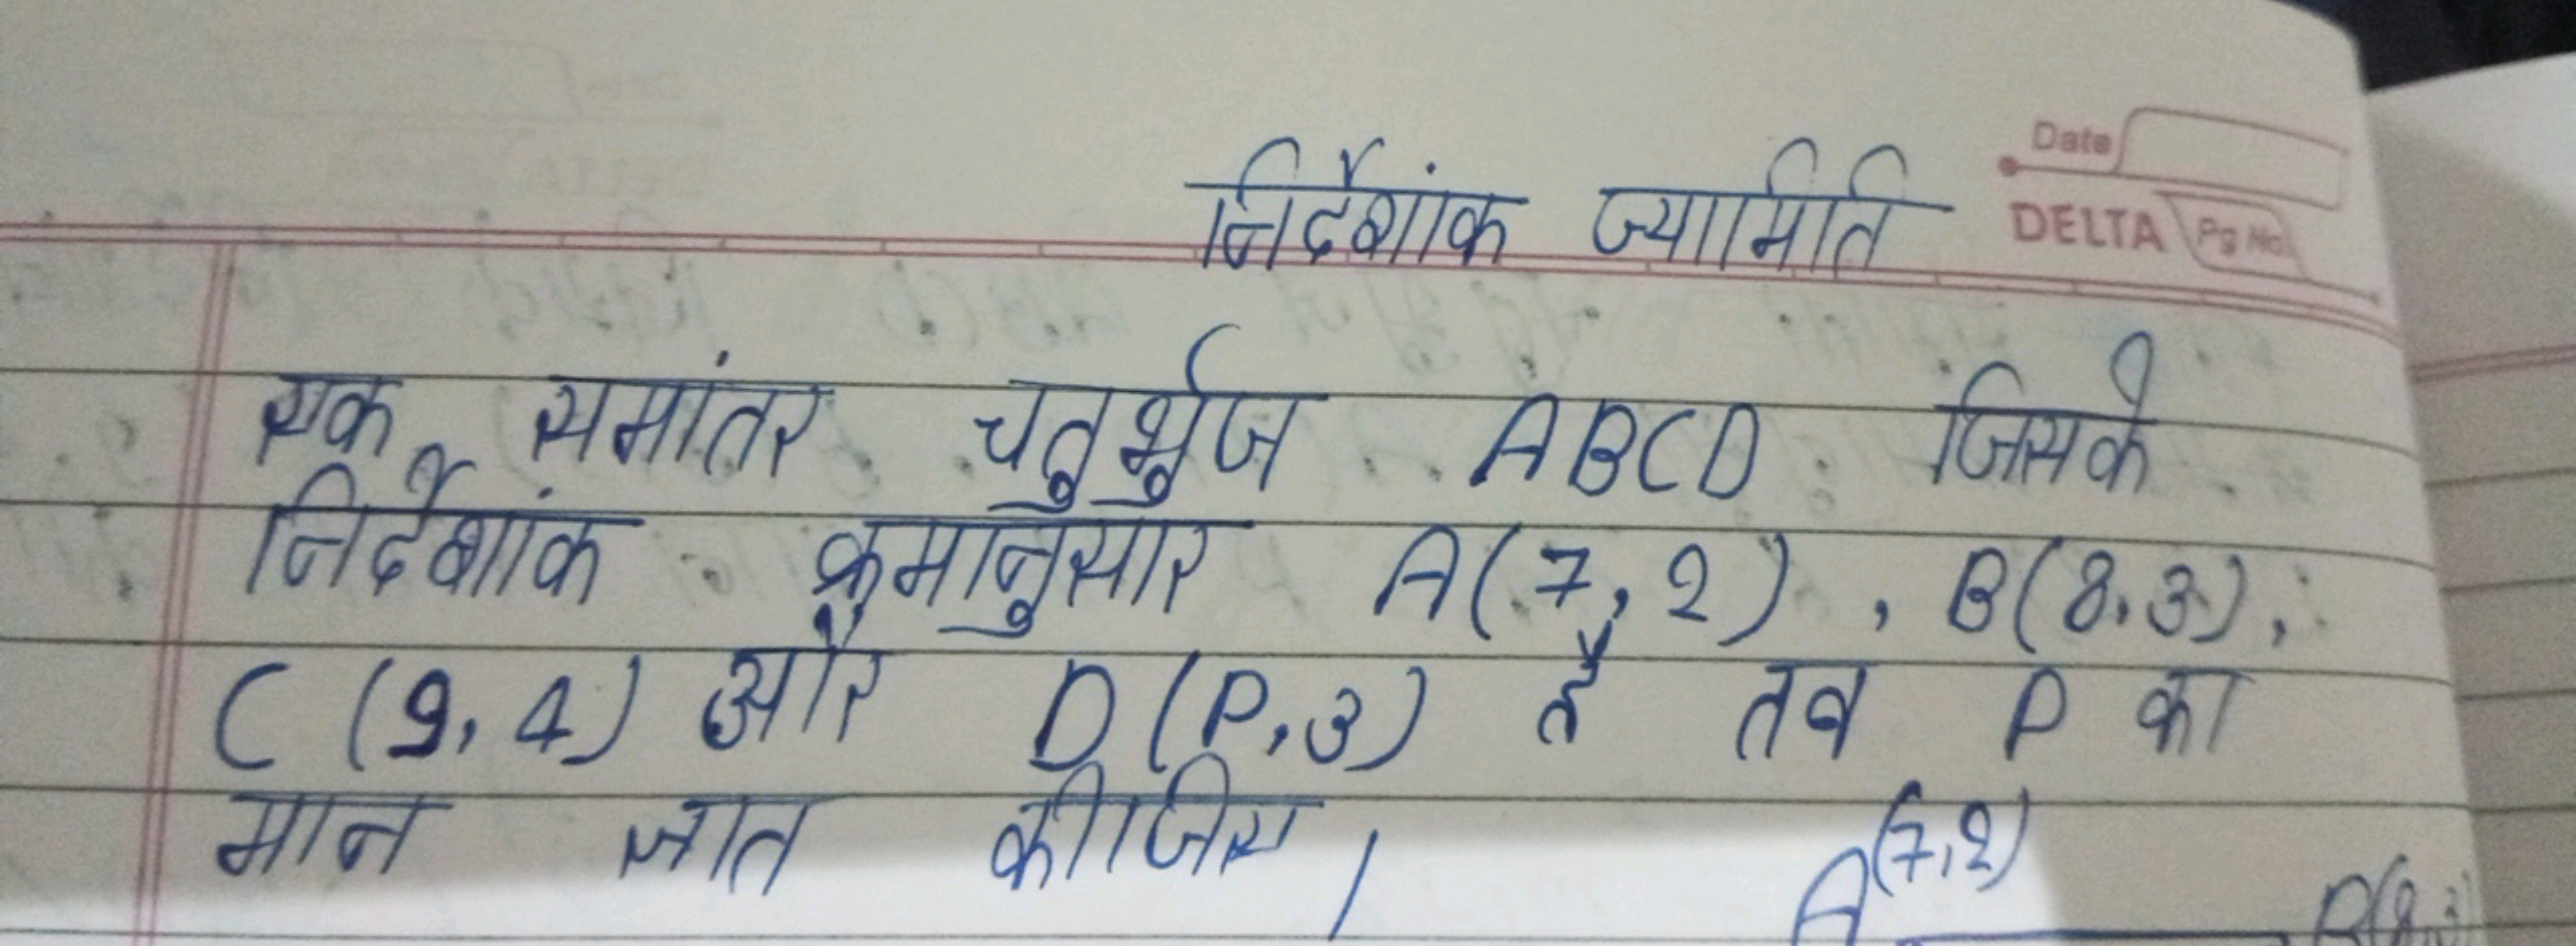 Date
निर्देशांक ज्यामिति
DELTA Pg No.
एक समांतर चतुर्भुज ABCD जिसके
निर्देशांक क्रमानुसार A(7,2), B(8,3),
C (9,4) और D(P,3) है तब P का
मान ज्ञात कीजिए।
A(7,2)
B(8,3)